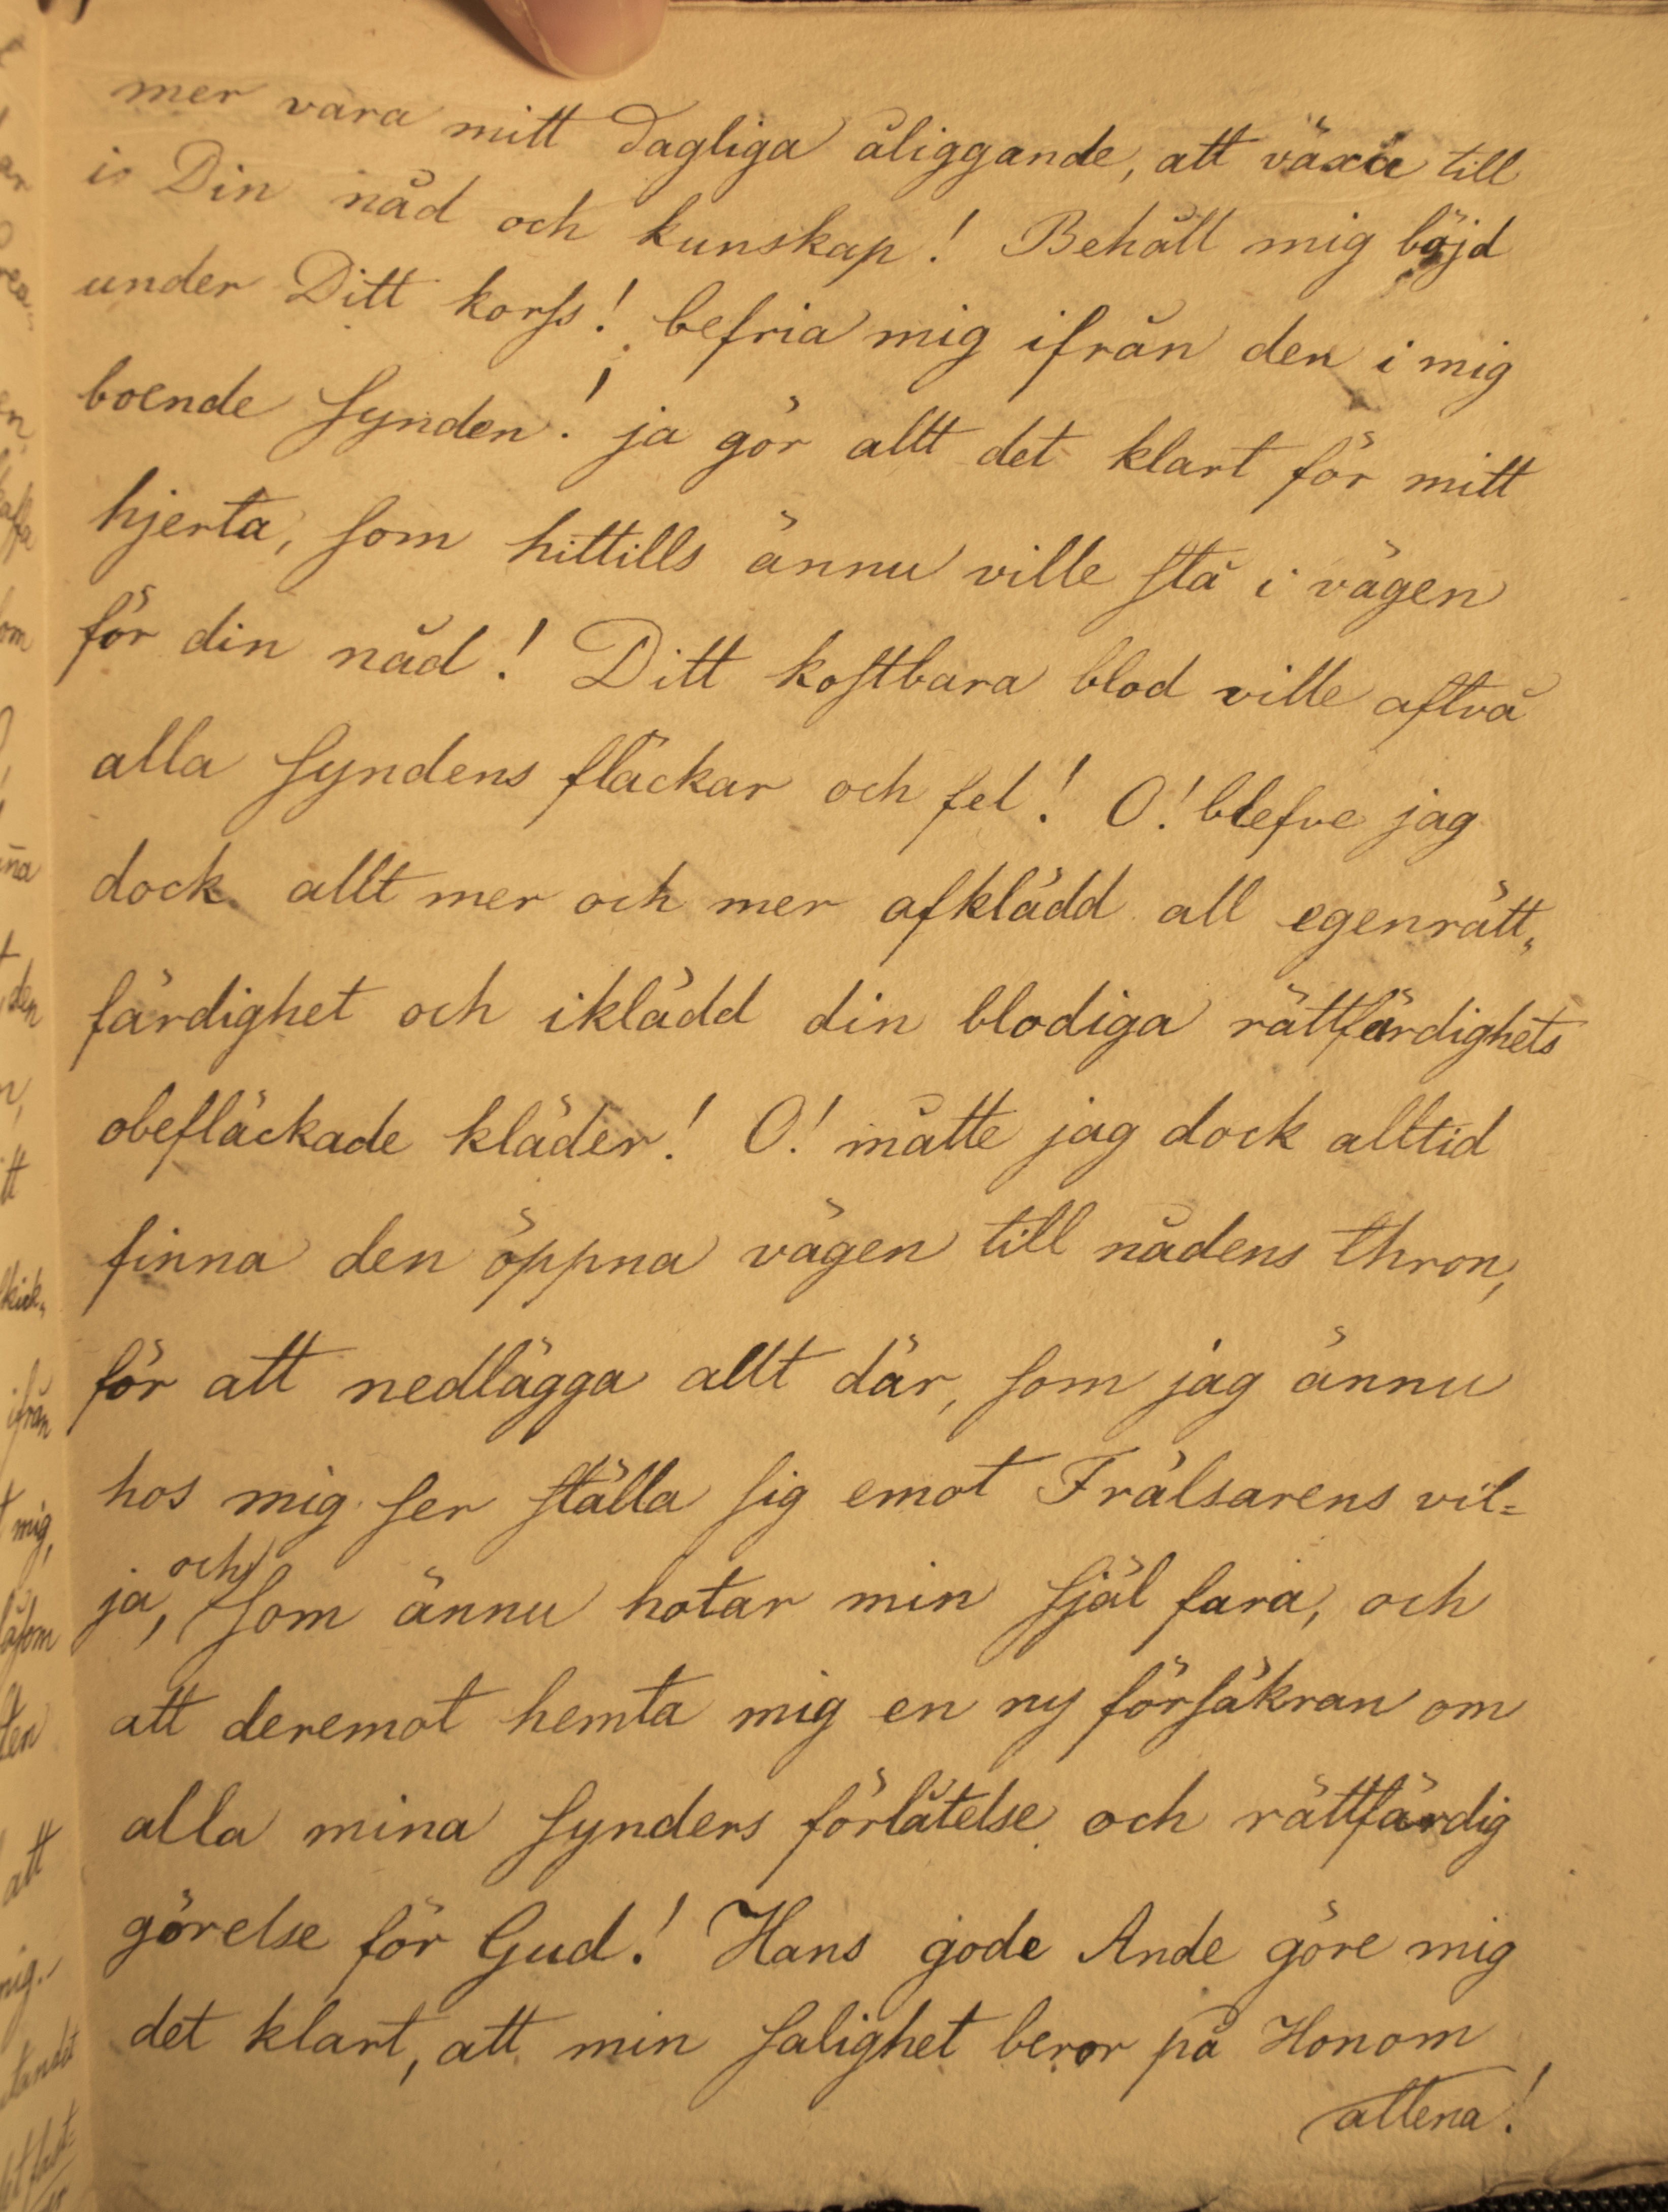 mer vara mitt dagliga åliggande, att växa till
i Din nåd och kunskap! Behåll mig böjd
under Ditt korſs! befria mig ifrån den i mig
boende ſynden! ja gör allt det klart för mitt
hjerta, ſom hittills ännu ville ſtå i vägen
för din nåd! Ditt koſtbara blod ville aftvå
alla ſyndens fläckar och fel! O! blefve jag
dock allt mer och mer afklädd all egenrätt„
färdighet och iklädd din blodiga rättfärdighets
obefläckade kläder! O! måtte jag dock alltid
finna den öppna vägen till nådens thron,
för att nedlägga allt där, ſom jag ännu
hos mig ſer ſtälla ſig emot Frälsarens vil=
ja, och ſom ännu hotar min ſjäl fara, och
att deremot hemta mig en ny förſäkran om
alla mina ſynders förlåtelse och rättfärdig
görelse för Gud! Hans gode Ande göre mig
det klart, att min ſalighet beror på Honom
allena!